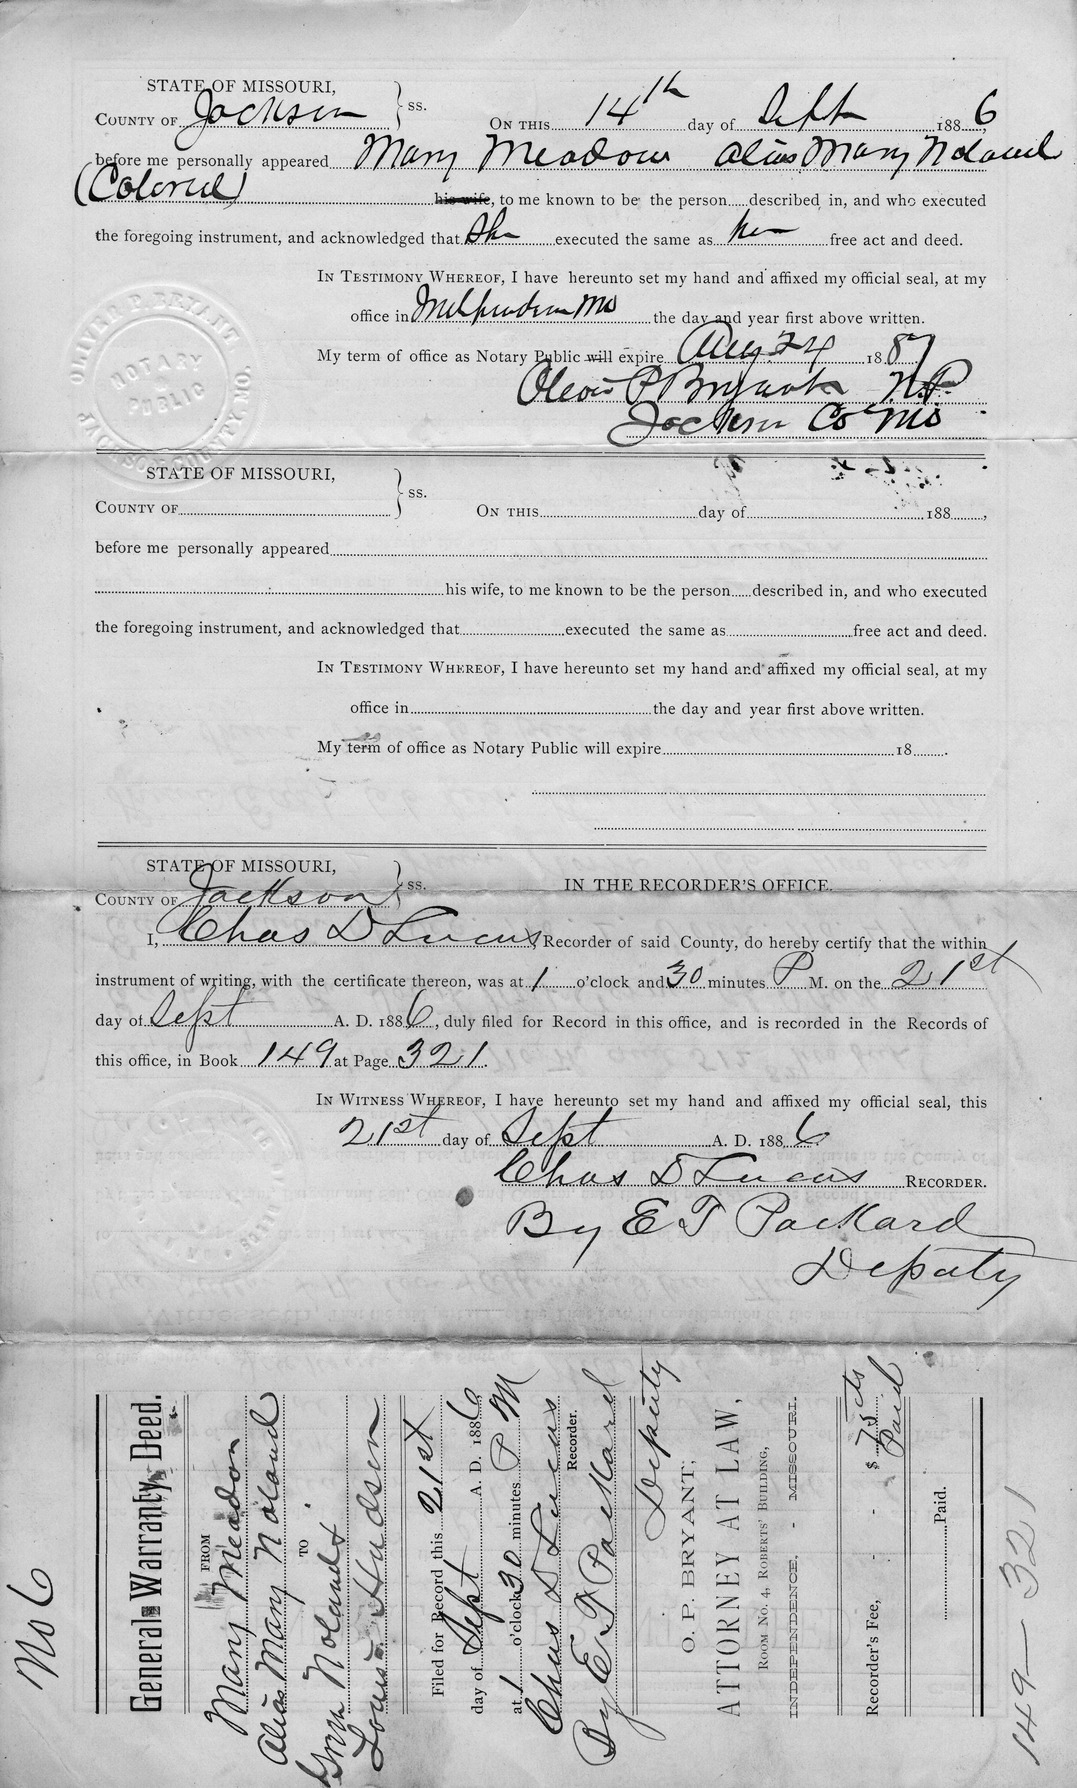 STATE OF MISSOURI,
COUNTY OF Jackson } ss. ON THIS 14th day of Sept 1886,
before me personally appeared Mary Meadow alias Mary Noland
(Colored) his wife, to me known to be the person described in, and who executed
the foregoing instrument, and acknowledged that She executed the same as her free act and deed.
IN TESTIMONY WHEREOF, I have hereunto set my hand and affixed my official seal, at my
office in Independence Mo the day and year first above written.
My term of office as Notary Public will expire Aug 24 1887
Oliver P Bryant N.P.
Jackson Co Mo
OLIVER P. BRYANT
NOTARY
PUBLIC
JACKSON COUNTY, MO.
STATE OF MISSOURI,
COUNTY OF } ss. ON THIS day of 188 ,
before me personally appeared
his wife, to me known to be the person described in, and who executed
the foregoing instrument, and acknowledged that executed the same as free act and deed.
IN TESTIMONY WHEREOF, I have hereunto set my hand and affixed my official seal, at my
office in the day and year first above written.
My term of office as Notary Public will expire 18 .
STATE OF MISSOURI,
COUNTY OF Jackson } ss. IN THE RECORDER'S OFFICE.
I, Chas D Lucas, Recorder of said County, do hereby certify that the within
instrument of writing, with the certificate thereon, was at 1 o'clock and 30 minutes P M. on the 21st
day of Sept A. D. 1886, duly filed for Record in this office, and is recorded in the Records of
this office, in Book 149 at Page 321.
IN WITNESS WHEREOF, I have hereunto set my hand and affixed my official seal, this
21st day of Sept A. D. 1886
Chas D Lucas RECORDER.
By E T Packard
Deputy
No 6
General Warranty Deed.
FROM
Mary Meadon
Alias Mary Noland
TO
Noland &
Louis Hudson
Filed for Record this 21st
day of Sept A. D. 1886
at 1 o'clock 30 minutes P M
Chas D Lucas
Recorder.
By E T Packard
Deputy
O. P. BRYANT,
ATTORNEY AT LAW,
ROOM NO. 4, ROBERTS' BUILDING,
INDEPENDENCE, - MISSOURI.
Recorder's Fee, - - $ 75 cts
Paid
Paid.
149-321